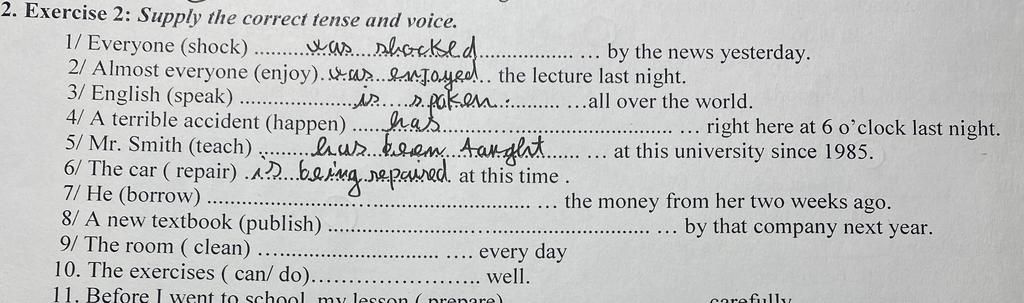 2. Exercise 2: Supply the correct tense and voice.
1/ Everyone (shock) ........was shocked.................. ... by the news yesterday.
2/ Almost everyone (enjoy). was enjoyed.. the lecture last night.
3/ English (speak) ...................is....spoken.:......... ...all over the world.
4/ A terrible accident (happen) ......has....................................... ... right here at 6 o'clock last night.
5/ Mr. Smith (teach) .........has been taught...... ... at this university since 1985.
6/ The car ( repair) .is..being.repaired. at this time .
7/ He (borrow) ...................................................... ... the money from her two weeks ago.
8/ A new textbook (publish) ...................................................... ... by that company next year.
9/ The room ( clean) .............................. .... every day
10. The exercises ( can/ do)......................... well.
11. Before I went to school, my lesson ( prepare) carefully